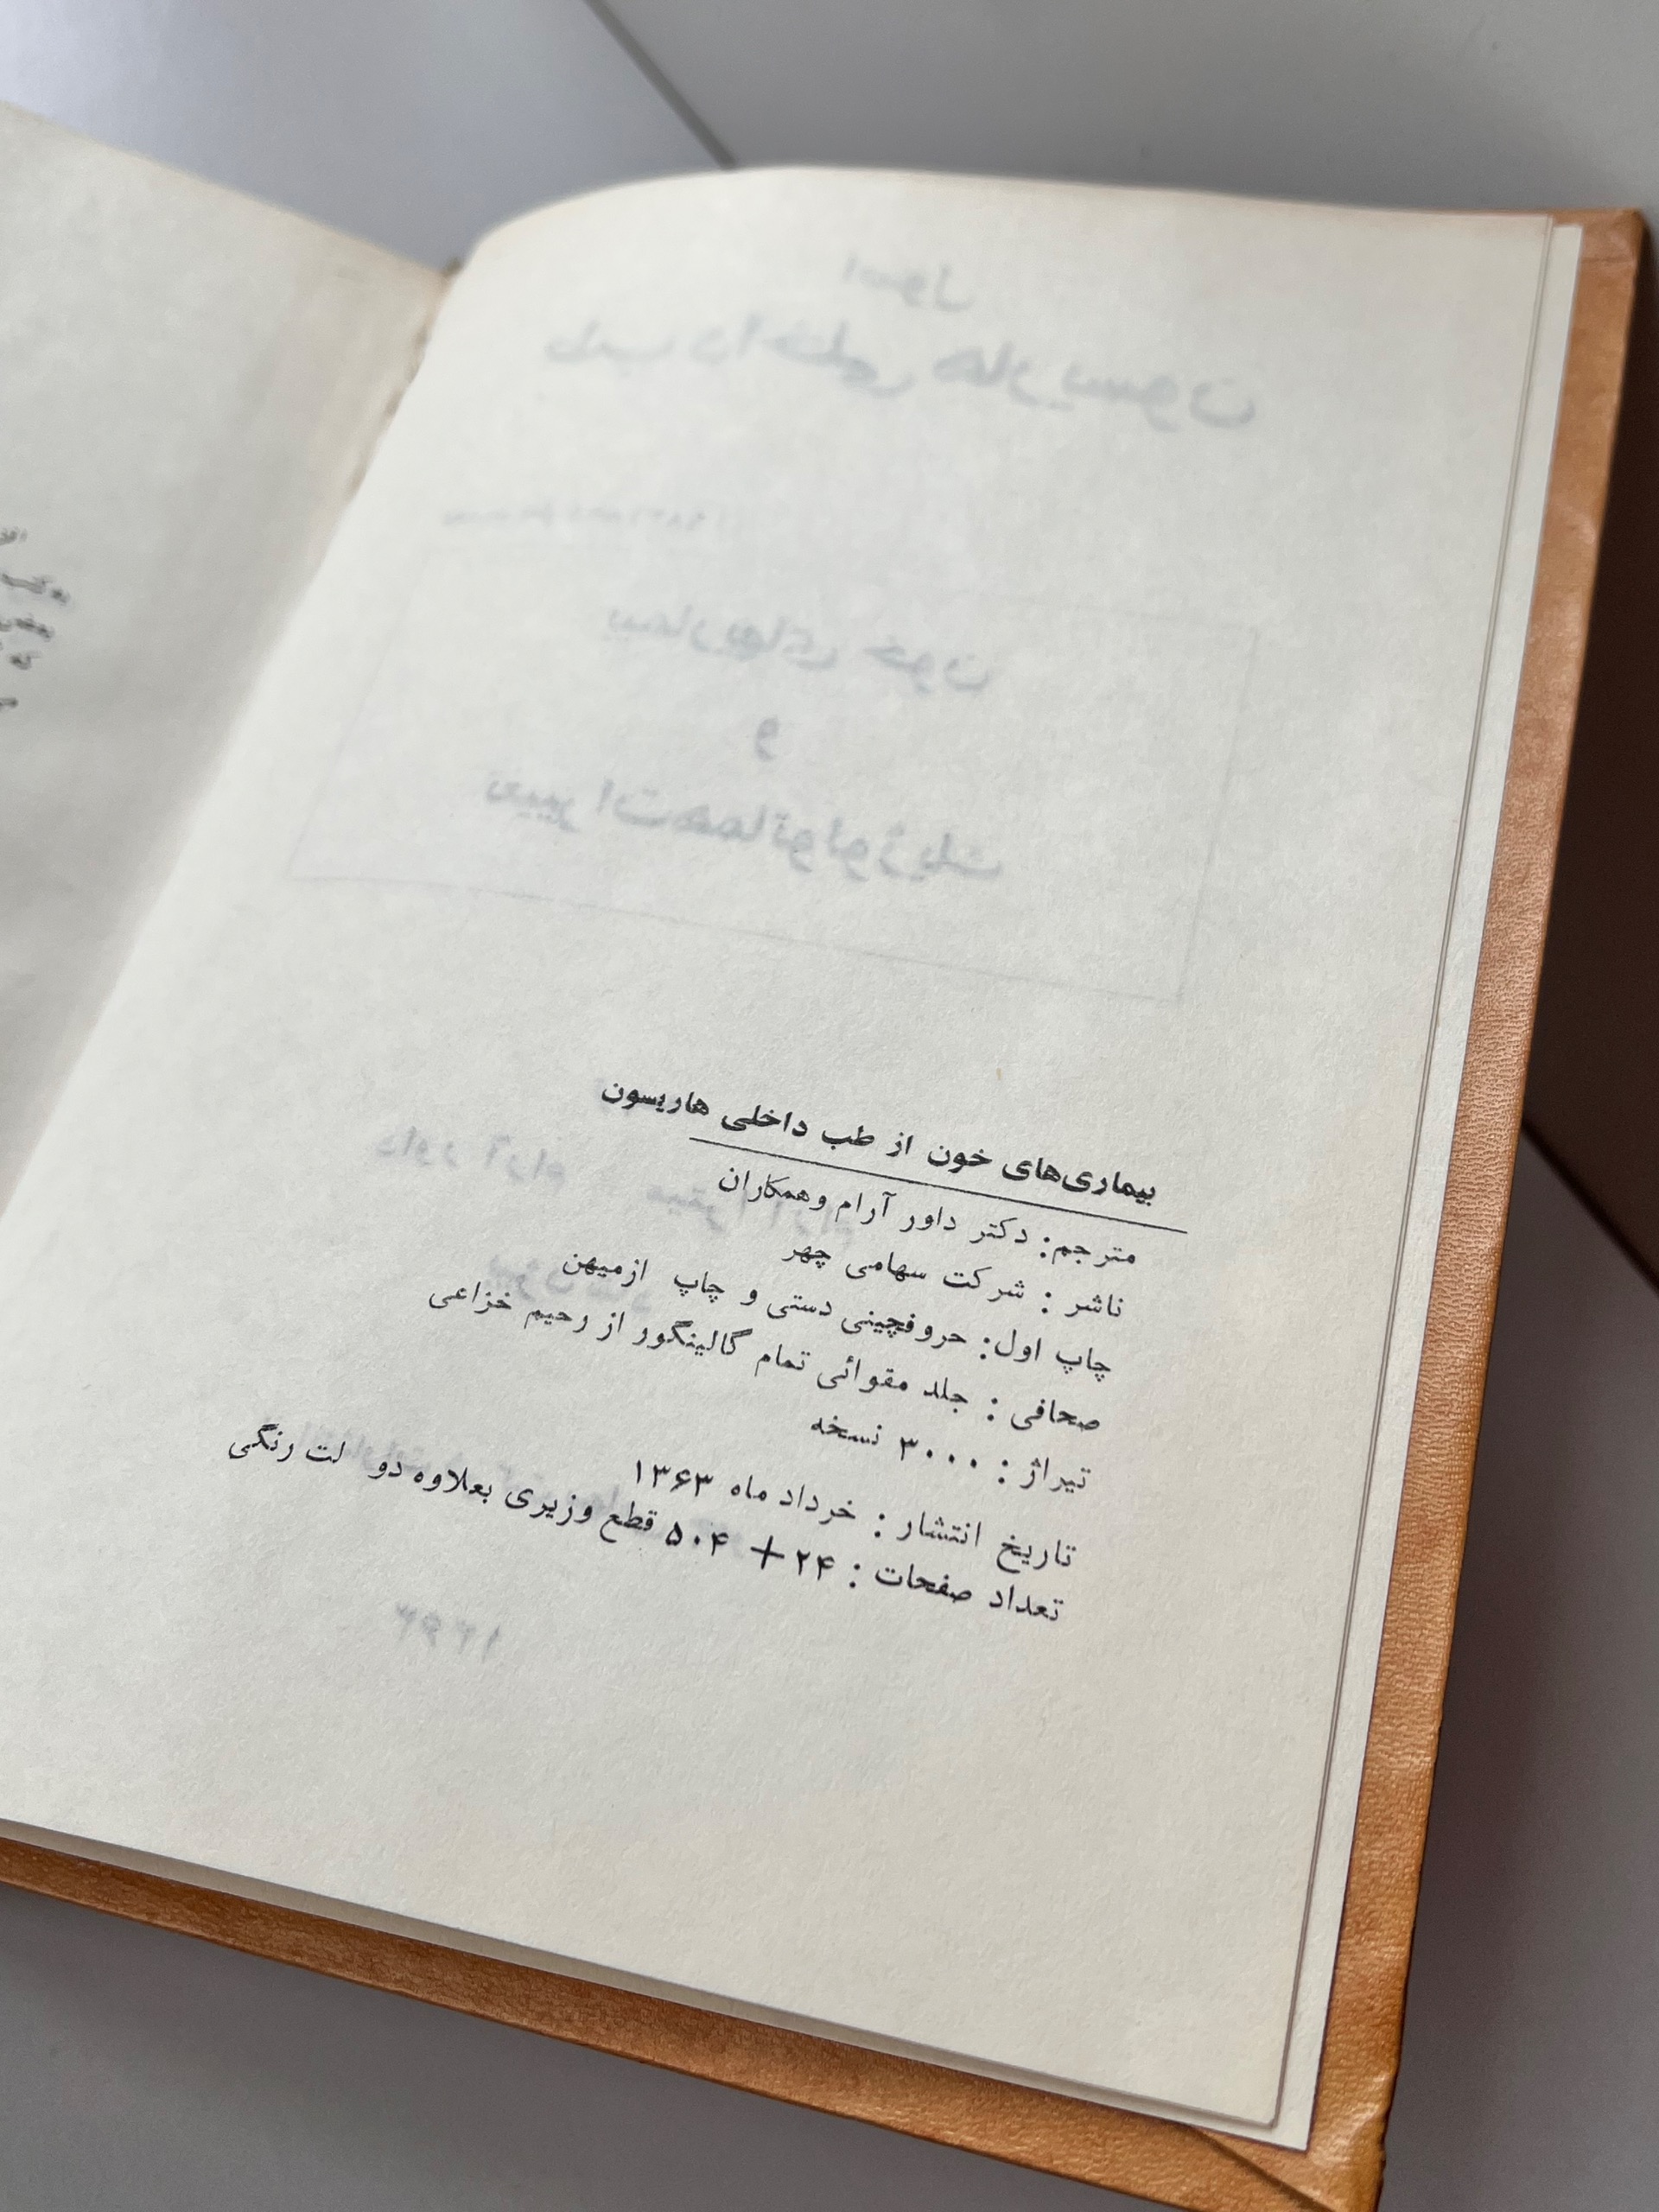 بیماری‌های خون از طب داخلی هاریسون
مترجم: دکتر داور آرام وهمکاران
ناشر : شرکت سهامی چهر
چاپ اول: حروفچینی دستی و چاپ ازمیهن
صحافی : جلد مقوائی تمام گالینگور از رحیم خزاعی
تیراژ : ۳۰۰۰ نسخه
تاریخ انتشار : خرداد ماه ۱۳۶۳
تعداد صفحات : ۲۴ + ۵۰۴ قطع وزیری بعلاوه دو لت رنگی